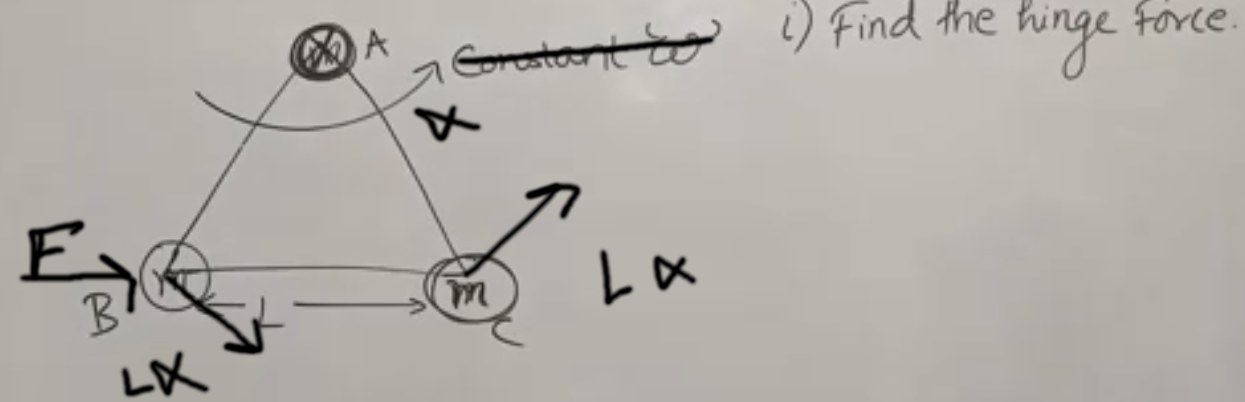 i) Find the hinge force.
m A
Constant ω
α
F
B
m
L
m
C
L α
Lα